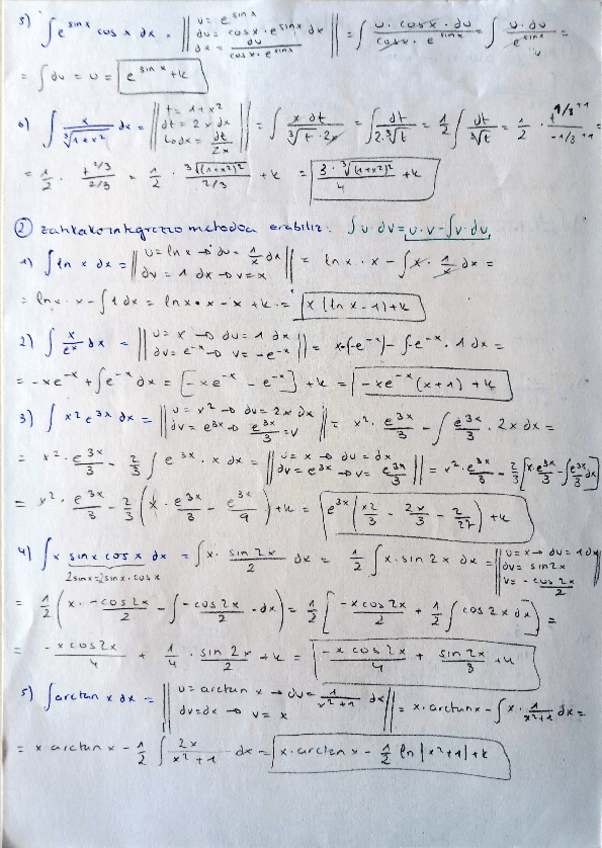 5) ∫ e^{sin x} cos x dx = || u = e^{sin x} ; du = cos x · e^{sin x} dx ; dx = du/(cos x · e^{sin x}) || = ∫ (u · cos x · du)/(cos x · e^{sin x}) = ∫ (u · du)/e^{sin x} =
= ∫ du = u = e^{sin x} + k
6) ∫ x/∛(1+x²) dx = || t = 1+x² ; dt = 2x dx ; ↳ dx = dt/2x || = ∫ (x dt)/(∛t · 2x) = ∫ dt/(2·∛t) = 1/2 ∫ dt/∛t = 1/2 · t^{-1/3+1}/(-1/3+1)
= 1/2 · t^{2/3}/(2/3) = 1/2 · ∛((1+x²)²)/(2/3) + k = 3·∛((1+x²)²)/4 + k
② zatikako integrazio metodoa erabiliz: ∫ u · dv = u · v - ∫ v · du
1) ∫ ln x dx = || u = ln x → du = 1/x dx ; dv = 1 dx → v = x || = ln x · x - ∫ x · 1/x dx =
= ln x · x - ∫ 1 dx = ln x · x - x + k = x (ln x - 1) + k
2) ∫ x/e^x dx = || u = x → du = 1 dx ; dv = e^{-x} → v = -e^{-x} || = x·(-e^{-x}) - ∫ -e^{-x} · 1 dx =
= -xe^{-x} + ∫ e^{-x} dx = [-xe^{-x} - e^{-x}] + k = -xe^{-x} (x+1) + k
3) ∫ x² e^{3x} dx = || u = x² → du = 2x dx ; dv = e^{3x} → e^{3x}/3 = v || = x² · e^{3x}/3 - ∫ e^{3x}/3 · 2x dx =
= x² · e^{3x}/3 - 2/3 ∫ e^{3x} · x dx = || u = x → du = dx ; dv = e^{3x} → v = e^{3x}/3 || = x² · e^{3x}/3 - 2/3 [x·e^{3x}/3 - ∫ e^{3x}/3 dx]
= x² · e^{3x}/3 - 2/3 (x · e^{3x}/3 - e^{3x}/9) + k = e^{3x} (x²/3 - 2x/3 - 2/27) + k
4) ∫ x sin x cos x dx = ∫ x · sin 2x/2 dx = 1/2 ∫ x · sin 2x dx = || u = x → du = 1 dx ; dv = sin 2x ; v = -cos 2x/2
= 1/2 (x · -cos 2x/2 - ∫ -cos 2x/2 · dx) = 1/2 [-x cos 2x/2 + 1/2 ∫ cos 2x dx] =
= -x cos 2x/4 + 1/4 · sin 2x/2 + k = -x cos 2x/4 + sin 2x/3 + k
5) ∫ arctan x dx = || u = arctan x → du = 1/(x²+1) dx ; dv = dx → v = x || = x · arctan x - ∫ x · 1/(x²+1) dx =
= x arctan x - 1/2 ∫ 2x/(x²+1) dx = x · arctan x - 1/2 ln |x²+1| + k